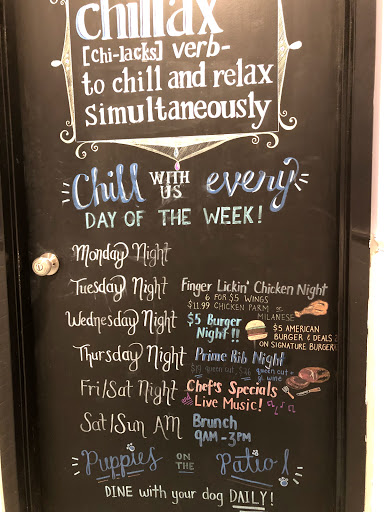 chillax
[chi-lacks] verb-
to chill and relax
simultaneously
Chill WITH US every
DAY OF THE WEEK!
Monday Night
Tuesday Night Finger Lickin' Chicken Night
6 FOR $5 WINGS
$11.99 CHICKEN PARM or
MILANESE
Wednesday Night $5 Burger
Night!!
$5 AMERICAN
BURGER & DEALS
ON SIGNATURE BURGER!
Thursday Night Prime Rib Night
queen cut queen cut +
gl. wine
Fri/Sat Night Chef's Specials
Live Music!
Sat/Sun AM Brunch
9AM-3PM
Puppies ON THE Patio!
DINE with your dog DAILY!